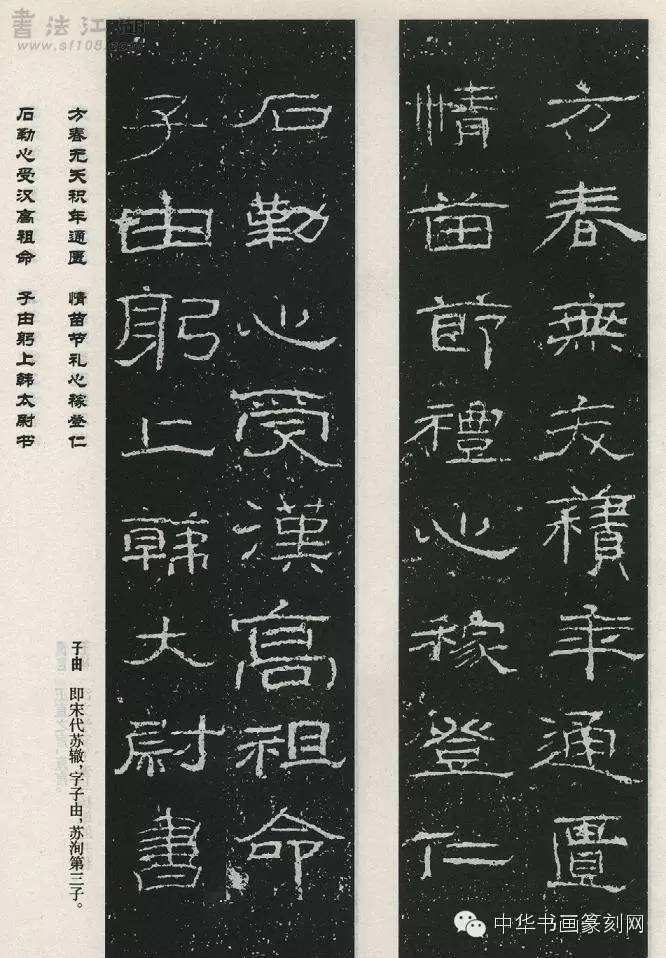 書法江湖
www.sf108.com
方春無積年通匱
情苗節禮心稼登仁
石勒心受漢高祖命
子由躬上韓大尉書
方春无天积年通匮 情苗节礼心稼登仁
石勒心受汉高祖命 子由躬上韩太尉书
子由 即宋代苏辙,字子由,苏洵第三子。
中华书画篆刻网